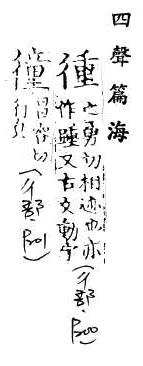 四聲篇海
㣫 之勇切相迹也亦
作踵又古文動字(彳部,P300)
徸 昌容切
行(彳部,P301)